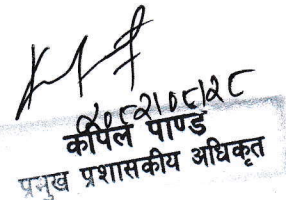 २०८२।०८।२८
कपिल पाण्डे
प्रमुख प्रशासकीय अधिकृत